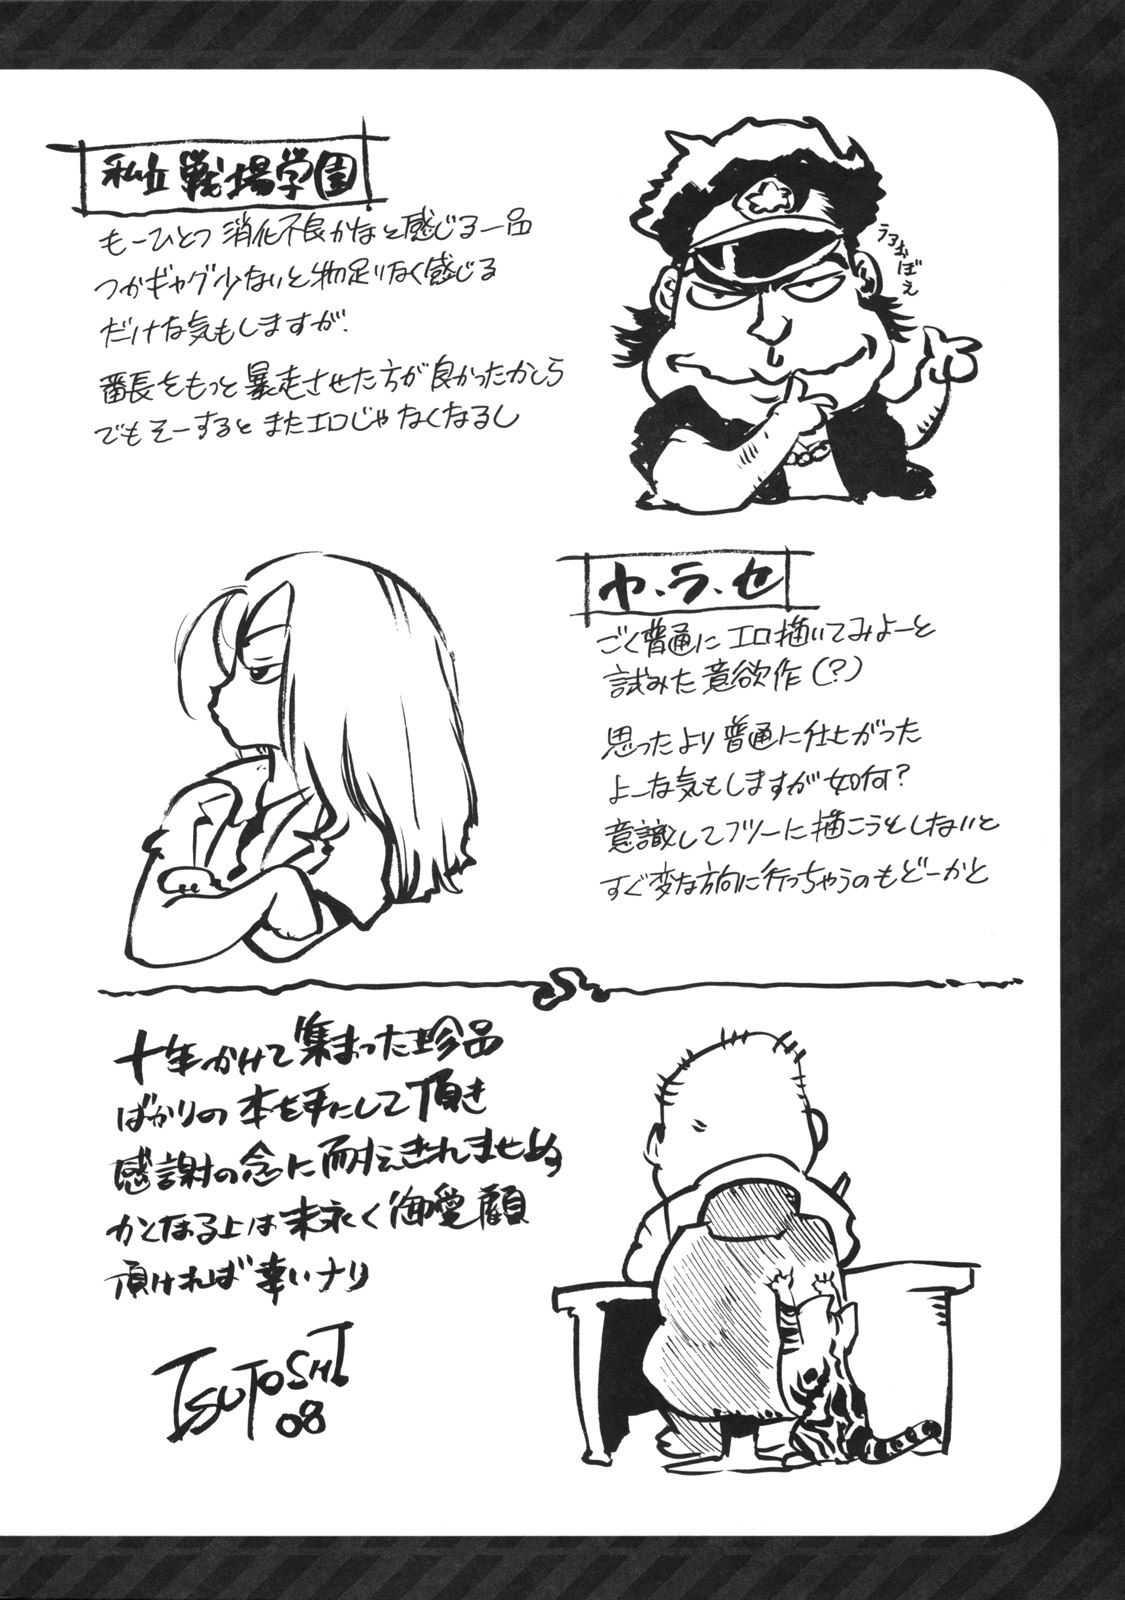 私立 戦場学園
もーひとつ 消化不良かなと感じる一品
つかギャグ少ないと物足りなく感じる
だけな気もしますが.
番長をもっと暴走させた方が良かったかしら
でもそーするとまたエロじゃなくなるし
ヲヨおぼえ
ヤ、ラ、セ
ごく普通にエロ描いてみよーと
試みた意欲作(?)
思ったより普通に仕上がった
よーな気もしますが如何?
意識してフツーに描こうとしないと
すぐ変な方向に行っちゃうのもどーかと
十年かけて集まった珍品
ばかりの本を手にして頂き
感謝の念に耐えきれませぬ
かとなる上は末永く御愛顧
頂ければ幸いナリ
TSUTOSHI
08